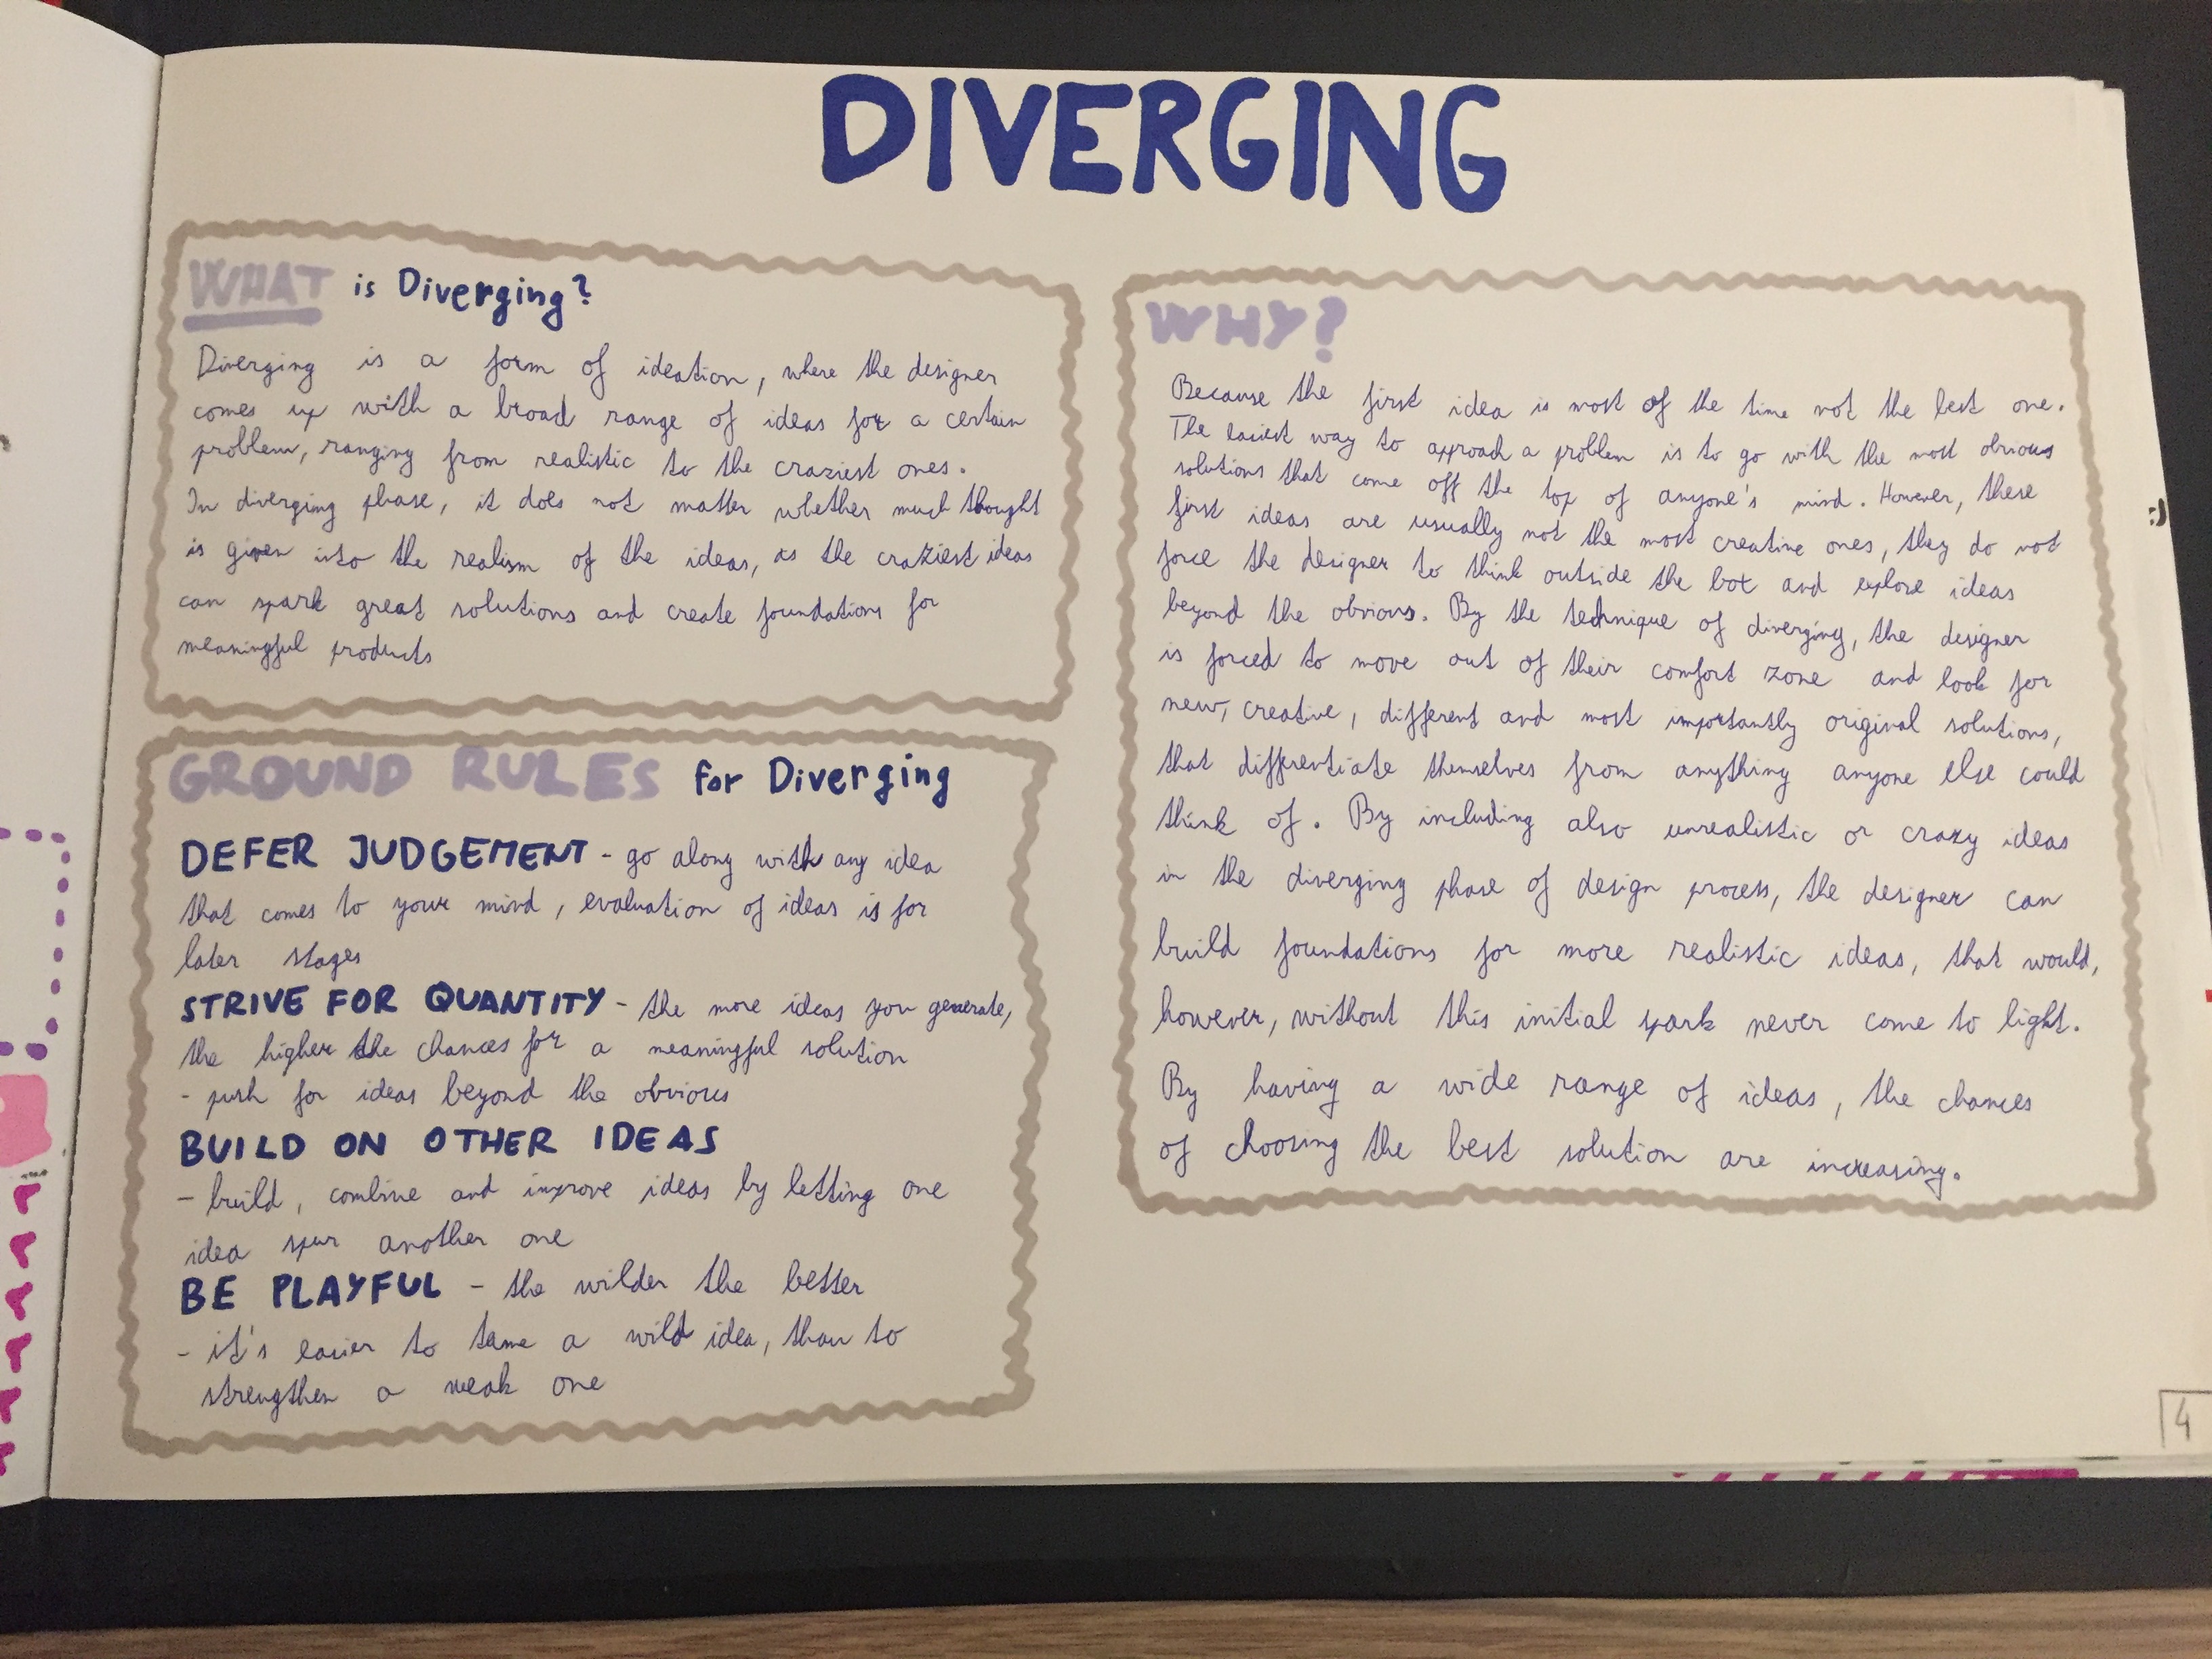 DIVERGING
WHAT is Diverging?
Diverging is a form of ideation, where the designer
comes up with a broad range of ideas for a certain
problem, ranging from realistic to the craziest ones.
In diverging phase, it does not matter whether much thought
is given into the realism of the ideas, as the craziest ideas
can spark great solutions and create foundations for
meaningful products
GROUND RULES for Diverging
DEFER JUDGEMENT - go along with any idea
that comes to your mind, evaluation of ideas is for
later stages
STRIVE FOR QUANTITY - the more ideas you generate,
the higher the chances for a meaningful solution
- push for ideas beyond the obvious
BUILD ON OTHER IDEAS
- build, combine and improve ideas by letting one
idea spur another one
BE PLAYFUL - the wilder the better
- it's easier to tame a wild idea, than to
strengthen a weak one
WHY?
Because the first idea is most of the time not the best one.
The easiest way to approach a problem is to go with the most obvious
solutions that come off the top of anyone's mind. However, these
first ideas are usually not the most creative ones, they do not
force the designer to think outside the box and explore ideas
beyond the obvious. By the technique of diverging, the designer
is forced to move out of their comfort zone and look for
new, creative, different and most importantly original solutions,
that differentiate themselves from anything anyone else could
think of. By including also unrealistic or crazy ideas
in the diverging phase of design process, the designer can
build foundations for more realistic ideas, that would,
however, without this initial spark never come to light.
By having a wide range of ideas, the chances
of choosing the best solution are increasing.
4